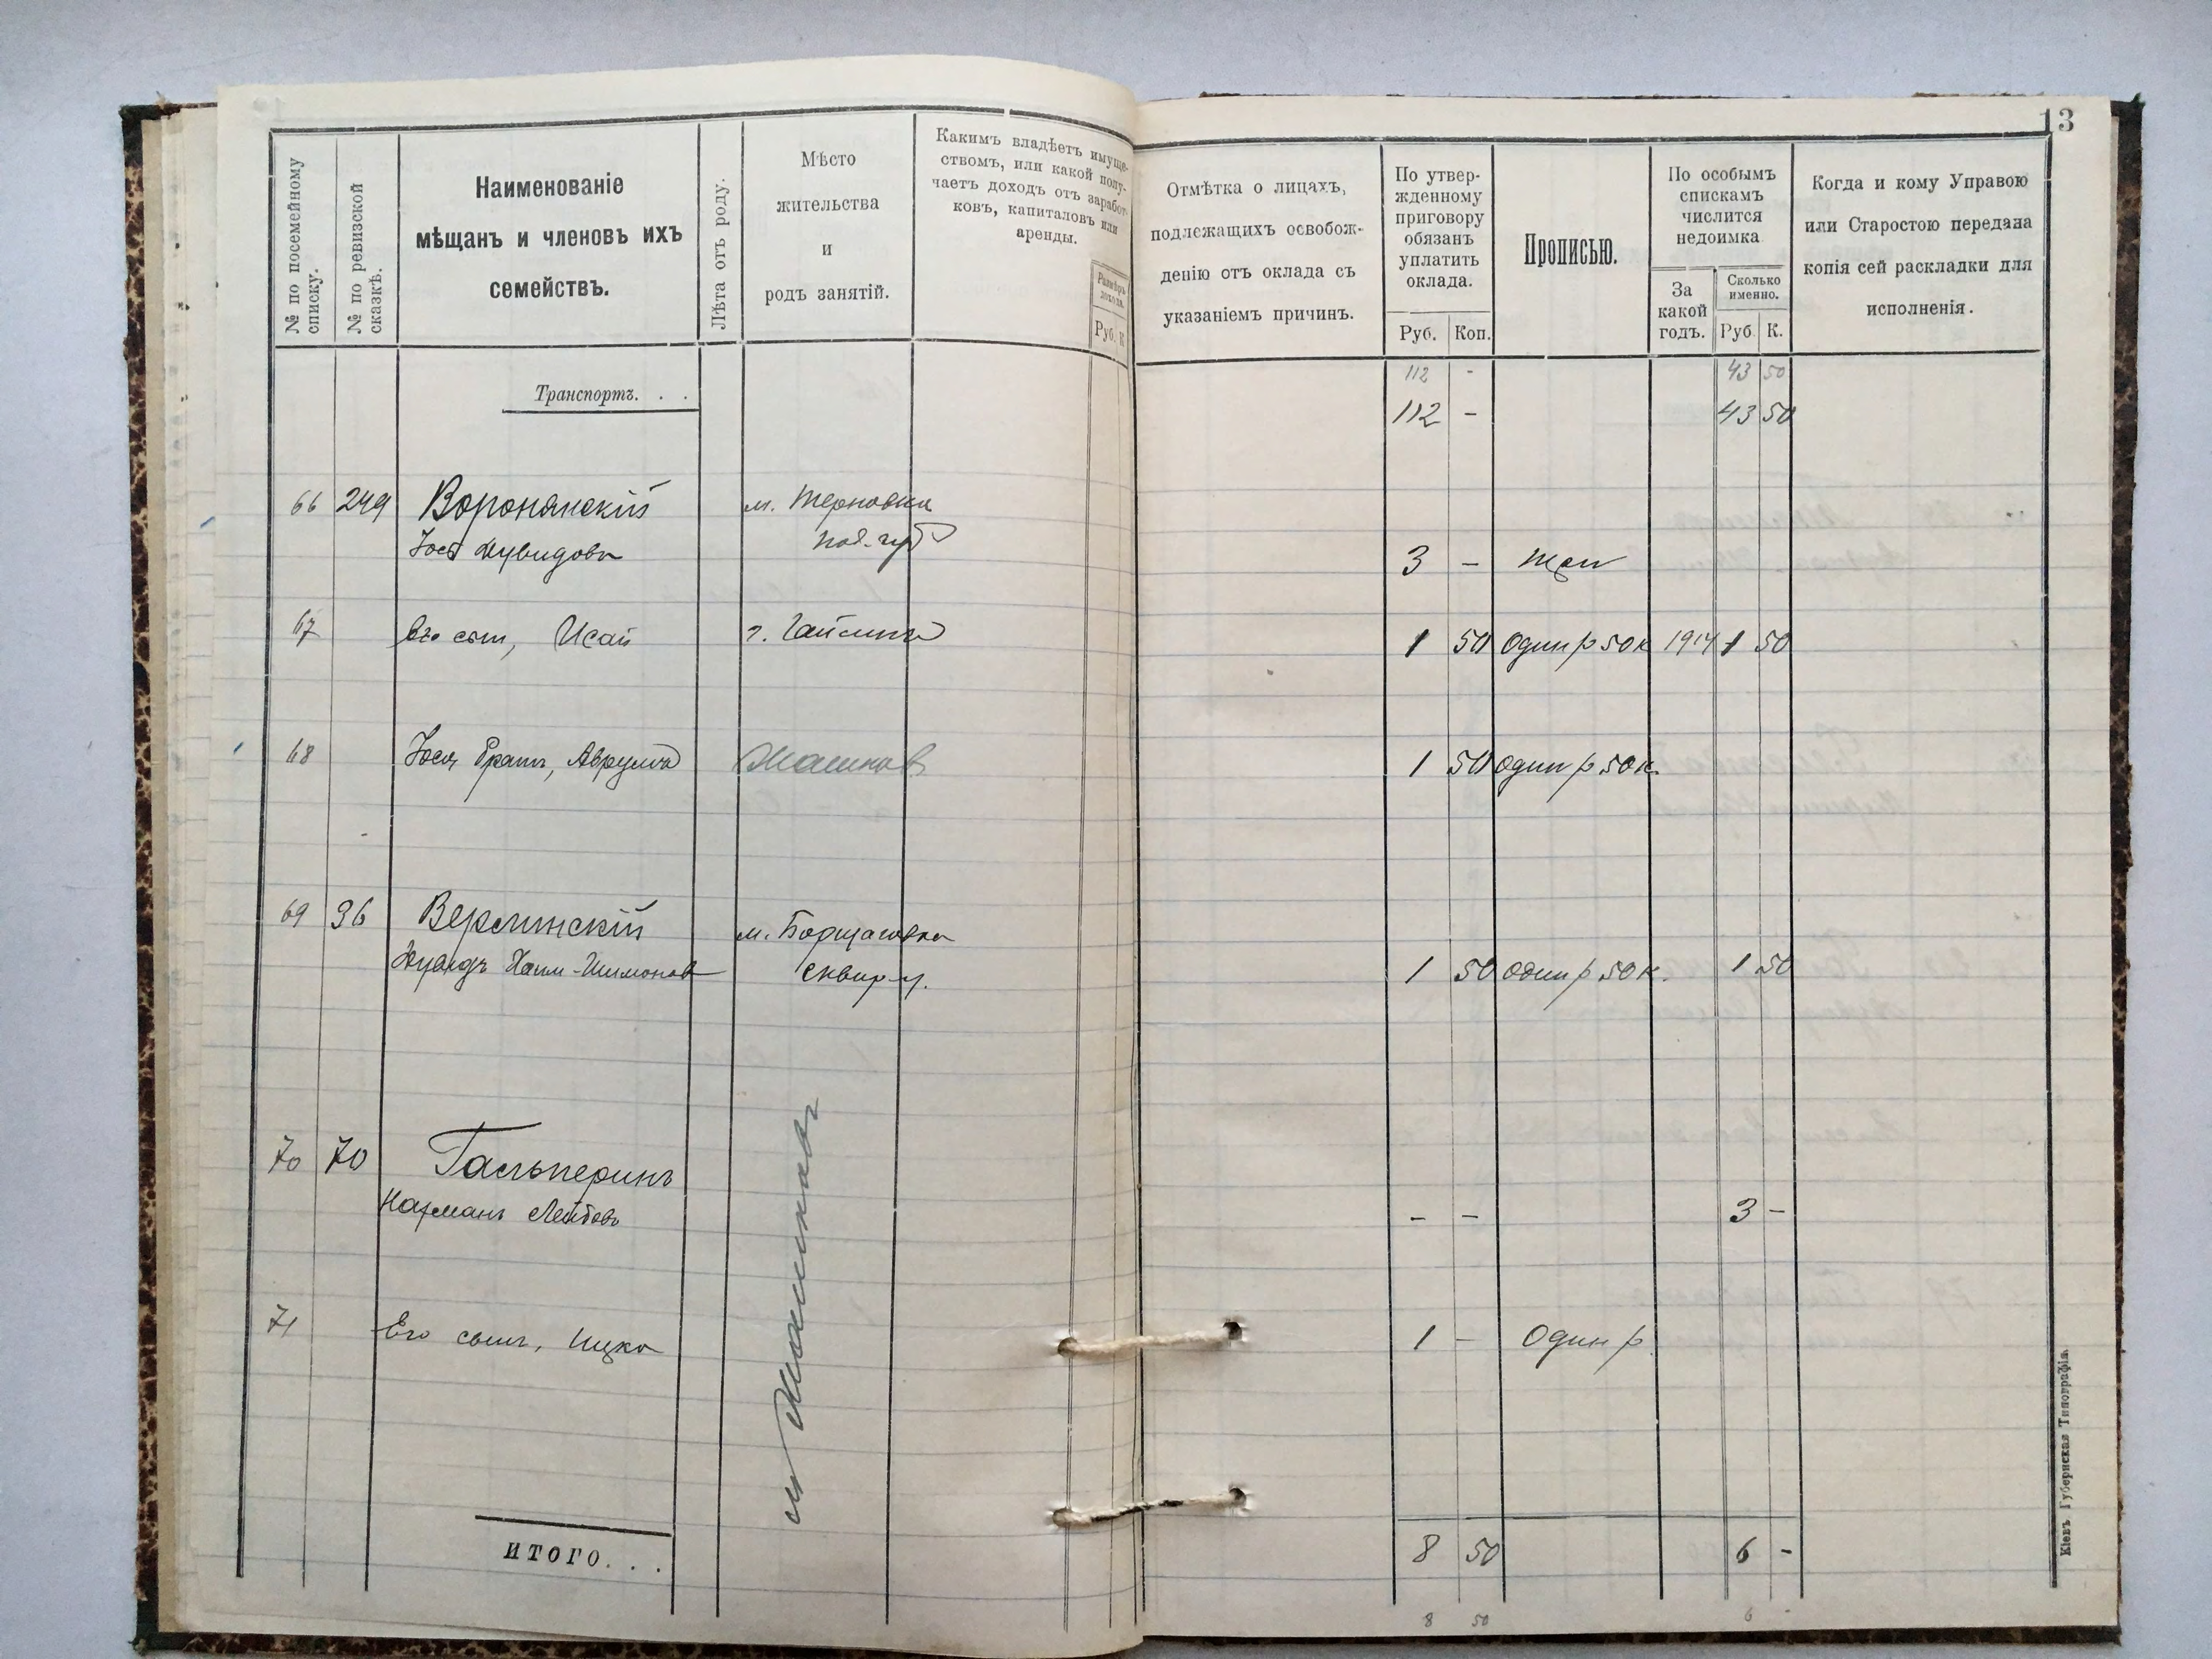 13
№ по посемейному
списку.
№ по ревизской
сказкѣ.
Наименованіе
мѣщанъ и членовъ ихъ
семействъ.
Лѣта отъ роду.
Мѣсто
жительства
и
родъ занятій.
Какимъ владѣетъ имуще-
ствомъ, или какой полу-
чаетъ доходъ отъ заработ-
ковъ, капиталовъ или
аренды.
Размѣръ
дохода.
Руб. К
Отмѣтка о лицахъ,
подлежащихъ освобож-
денію отъ оклада съ
указаніемъ причинъ.
По утвер-
жденному
приговору
обязанъ
уплатить
оклада.
Руб. Коп.
Прописью.
По особымъ
спискамъ
числится
недоимка
За
какой
годъ.
Сколько
именно.
Руб. К.
Когда и кому Управою
или Старостою передана
копія сей раскладки для
исполненія.
112 - 43 50
Транспортъ. . .
112 - 43 50
66 249 Воронянскій м. Терновка
Дувидовъ под. губ
3 - три
67 Его сынъ, Исай г. Гайсинъ 1 50 Один р 50 к 1914 1 50
68 братъ, Аврумъ Жашков 1 50 один р 50 к.
69 36 Верлинскій м. Борщаговка
Дувидъ Хаим-Шимонов сквир. у. 1 50 один р 50 к. 1 50
70 70 Гальперинъ
Нахманъ Лейбовъ - - 3 -
м Жашковъ
71 Его сынъ, Ицко 1 - Один р.
ИТОГО. . . 8 50 6 -
8 50 6 -
Кіевъ. Губернская Типографія.